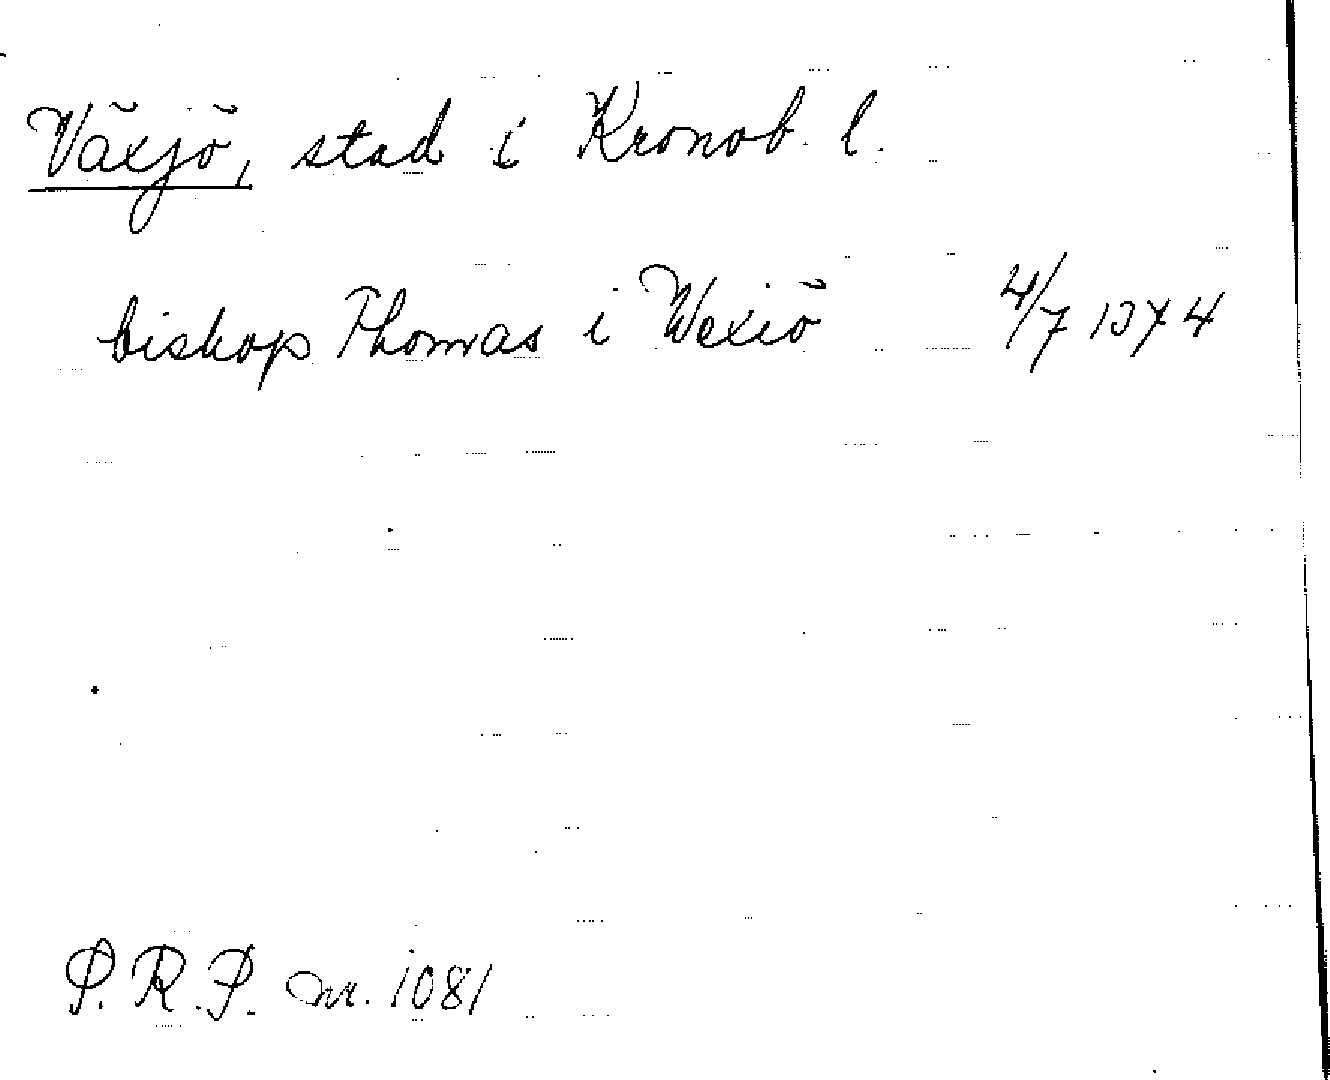 Växjö, stad i Kronob. l.
bishop Thomas i Wexiö 4/7 1374
S.R.P. nr. 1081